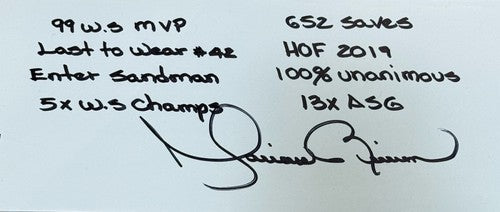 99 W.S MVP
Last to Wear #42
Enter Sandman
5x W.S Champs
652 Saves
HOF 2019
100% Unanimous
13x ASG
Mariano Rivera